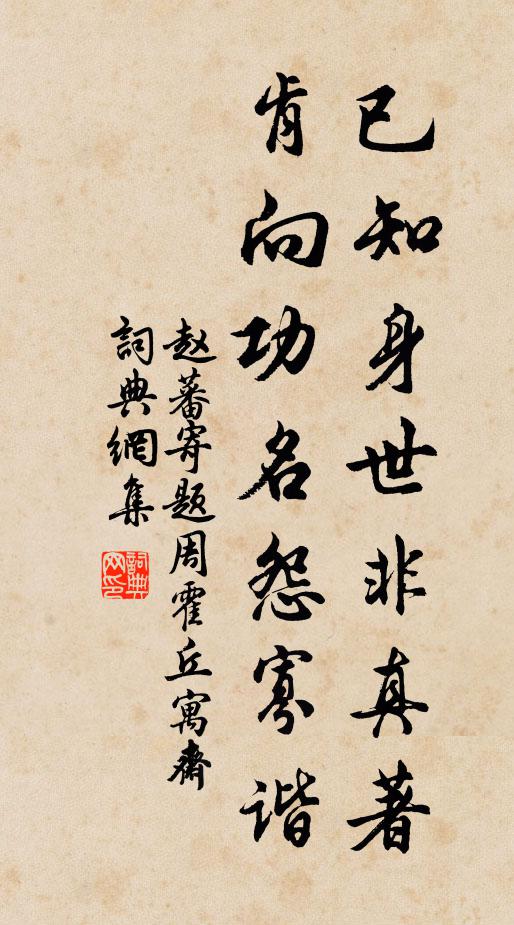 已知身世非真著
肯向功名怨寡谐
赵蕃寄题周霍丘寓齋
詞典網集
詞典网印